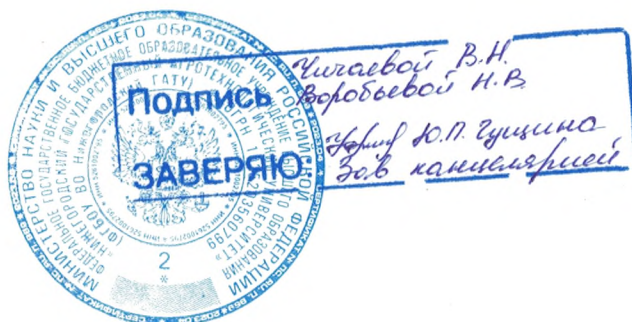 МИНИСТЕРСТВО НАУКИ И ВЫСШЕГО ОБРАЗОВАНИЯ РОССИЙСКОЙ ФЕДЕРАЦИИ
ФЕДЕРАЛЬНОЕ ГОСУДАРСТВЕННОЕ БЮДЖЕТНОЕ ОБРАЗОВАТЕЛЬНОЕ УЧРЕЖДЕНИЕ ВЫСШЕГО ОБРАЗОВАНИЯ
«НИЖЕГОРОДСКИЙ ГОСУДАРСТВЕННЫЙ АГРОТЕХНОЛОГИЧЕСКИЙ УНИВЕРСИТЕТ»
2
*
Подпись
Чичаевой В.Н.
Воробьевой Н.В.
ЗАВЕРЯЮ
Ю.П. Гущина
Зав канцелярией